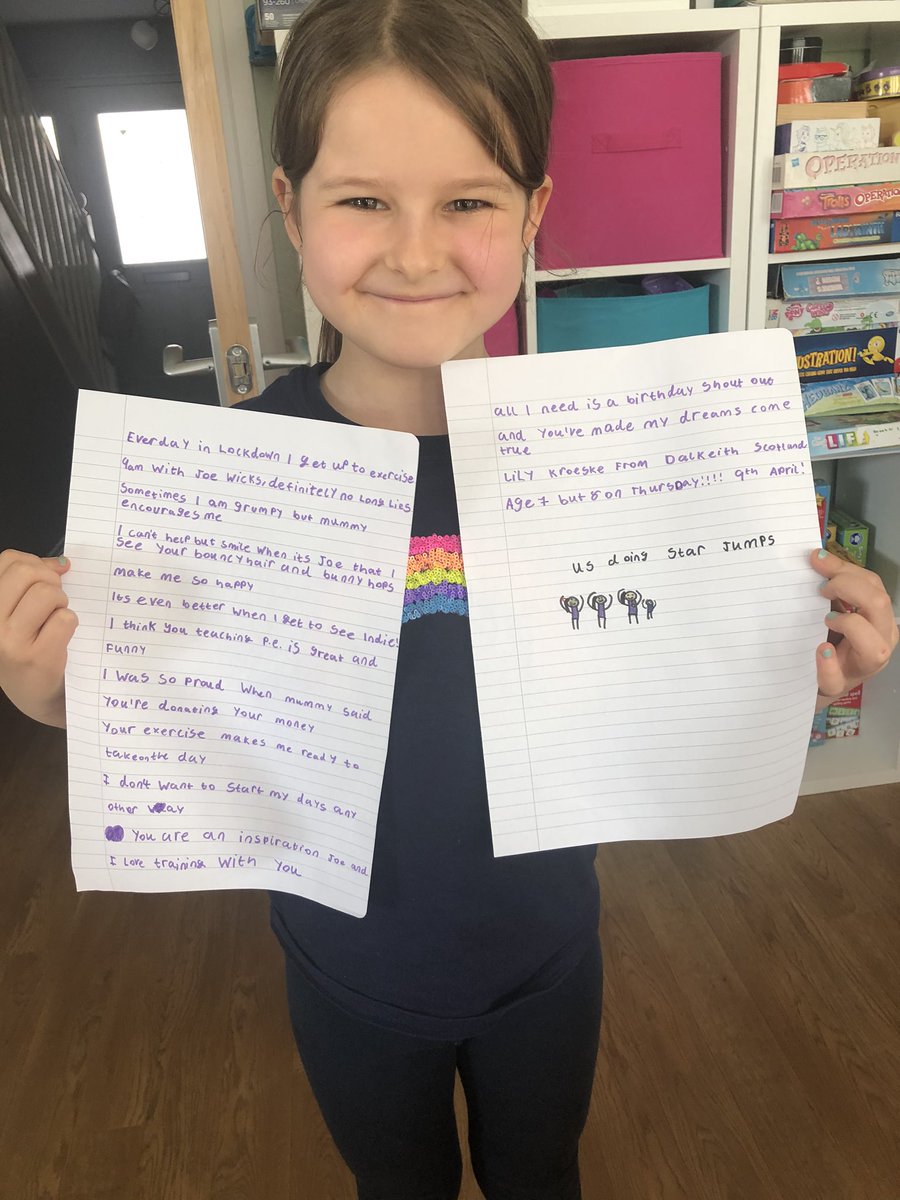 Everday in Lockdown I get up to exercise
9am with Joe Wicks, definitely no Long Lies
Sometimes I am grumpy but mummy
encourages me
I can't help but smile when its Joe that I
see your bouncy hair and bunny hops
make me so happy
Its even better when I get to see Indie!
I think you teaching P.E. is great and
Funny
I was so proud when mummy said
You're donating your money
Your exercise makes me ready to
take on the day
I don't want to start my days any
other way
You are an inspiration Joe and
I Love training with you
all I need is a birthday shout out
and you've made my dreams come
true
Lily Kroeske From Dalkeith Scotland
Age 7 but 8 on Thursday!!!! 9th April!
us doing star Jumps
93-260
50
OPERATION
Trolls OPERATION
LABYRINTH
USTRATION!
LIFE